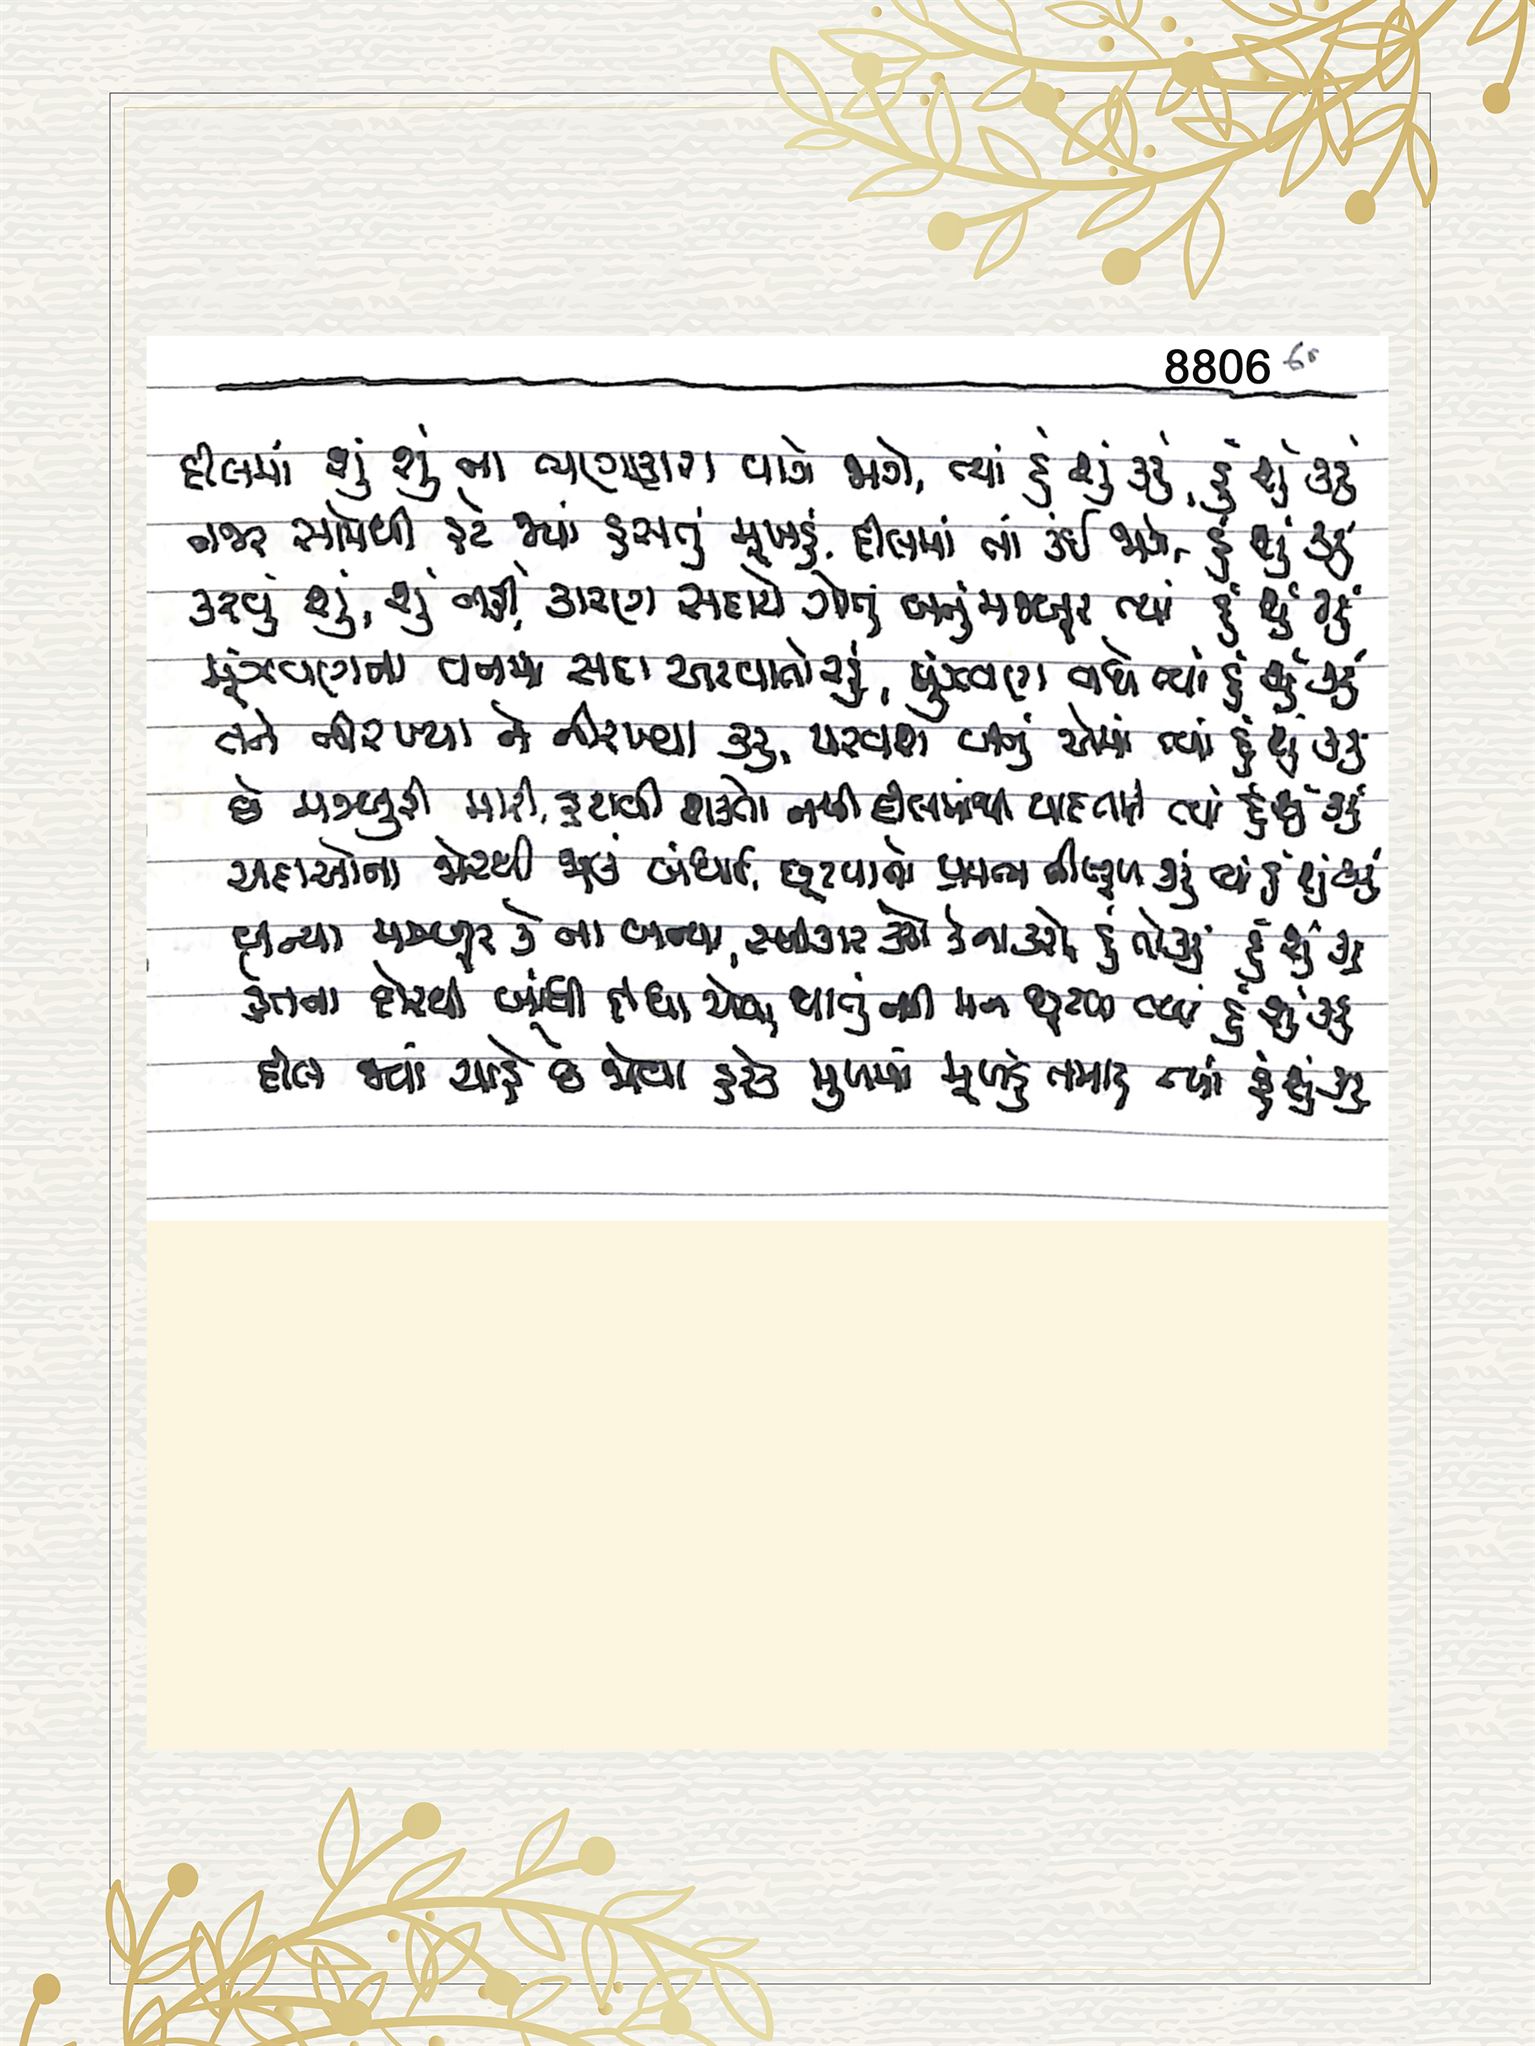 8806
દીલમાં શું શું ના વ્યાગે ભાગે, ત્યાં હું શું કરું, હું શું કરું
નજર સામેથી હટે જ્યાં હસતું મૂખડું. દીલમાં નાં કંઈ ભાવે, હું શું કરું
કરવું શું, શું નહીં, કારણ સદાયે ગોતું બનું મજબૂર ત્યાં હું શું કરું
મૂંઝવણના વનમાં સદા અટવાતો રહું, મુંઝવણ વધે ત્યાં હું શું કરું
તને નીરખ્યા ને નીરખ્યા કરું, પરવશ બનું એમાં ત્યાં હું શું કરું
છે મજબુરી મારી, હટાવી શકતો નથી દીલમાંથી યાદ તારી ત્યાં હું શું કરું
અદાઓના જોરથી જાઉં બંધાઈ, છૂટવાનો પ્રયત્ન નીષ્ફળ કરું ત્યાં હું શું કરું
બન્યા મજબૂર કે ના બન્યા, સ્વીકાર કરો કે ના કરો, હું તો કરું હું શું કરું
હેતના દોરથી બાંધી દીધા એવા, થાતું નથી મન છૂટવા ત્યાં હું શું કરું
દીલ જ્યાં ચાહે છે જોવા હરેક મુખમાં મૂખડું તમારું ત્યાં હું શું કરું